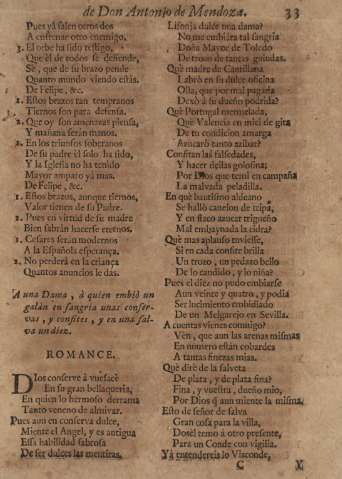 de Don Antonio de Mendoza. 33
Pues yá salen otros dos
A enfrenar otro enemigo,
3. El orbe ha sido testigo,
Que él de todos se defiende,
Sè, que de su brazo pende
Quanto mundo viendo estás.
De Felipe, &c.
2. Estos brazos tan tempranos
Tiernos son para defensa.
1. Que oy son amorosas piensa,
Y mañana serán manos.
2. En los triunfos soberanos
De su padre èl solo ha sido,
Y la Iglesia no ha tenido
Mayor amparo yá mas.
De Felipe, &c.
1. Estos brazos, aunque tiernos,
Valor tienen de su Padre.
2. Pues en virtud de su madre
Bien sabrán hacerse eternos.
3. Cesares serán modernos
A la Española esperança,
2. No perderá en la criança
Quantos anuncios le das.
A una Dama, à quien embiò un
galàn en sangria unas conser-
vas, y confites, y en una sal-
va un diez.
ROMANCE.
DIos conserve à vuesacè
En su gran bellaqueria,
En quien lo hermoso derrama
Tanto veneno de almivar.
Pues aun en conserva dulce,
Miente el Angel, y es antigua
Essa habilidad sabrosa
De ser dulces las mentiras.
Lisonja dulce una dama?
No me embiára tal sangria
Doña Mayor de Toledo
De troas de tantas guindas.
Què madre de Cantillana
Labrò en su dulce oficina
Olla, que por mal pagada
Dexò à su dueño podrida?
Què Portugal mermelada,
Què Valencia en miel de gita
De tu condicion amarga
Azucarò tanto azibar?
Confitar las falsedades,
Y hacer dulas golosina;
Por Dios que tenul en campaña
La malvada peladilla.
En què bautismo aldeano
Se hallò canelon de tripa,
Y en flaco azucar trigueño
Mal embaynada la cidra?
Què mas aplauso tuviesse,
Si en cada confite brilla
Un trozo, un pedazo bello
De lo candido, y lo niña?
Pues el diez no pudo embiarse
Aun veinte y quatro, y podia
Ser lucimiento embidiado
De un Melgarejo en Sevilla.
A cuentas vienes conmigo?
Vèn, que aun las arenas mismas
En numero están cobardes
A tantas finezas mias.
Què dirè de la salveta
De plata, y de plata fina?
Fina, y vuestra, dueño mio,
Por Dios q̃ aun miente la misma.
Esto de señor de salva
Gran cosa para la villa,
Dosèl temo à otro presente,
Para un Conde con vigilia.
Yà entendereis lo Visconde,
C Y